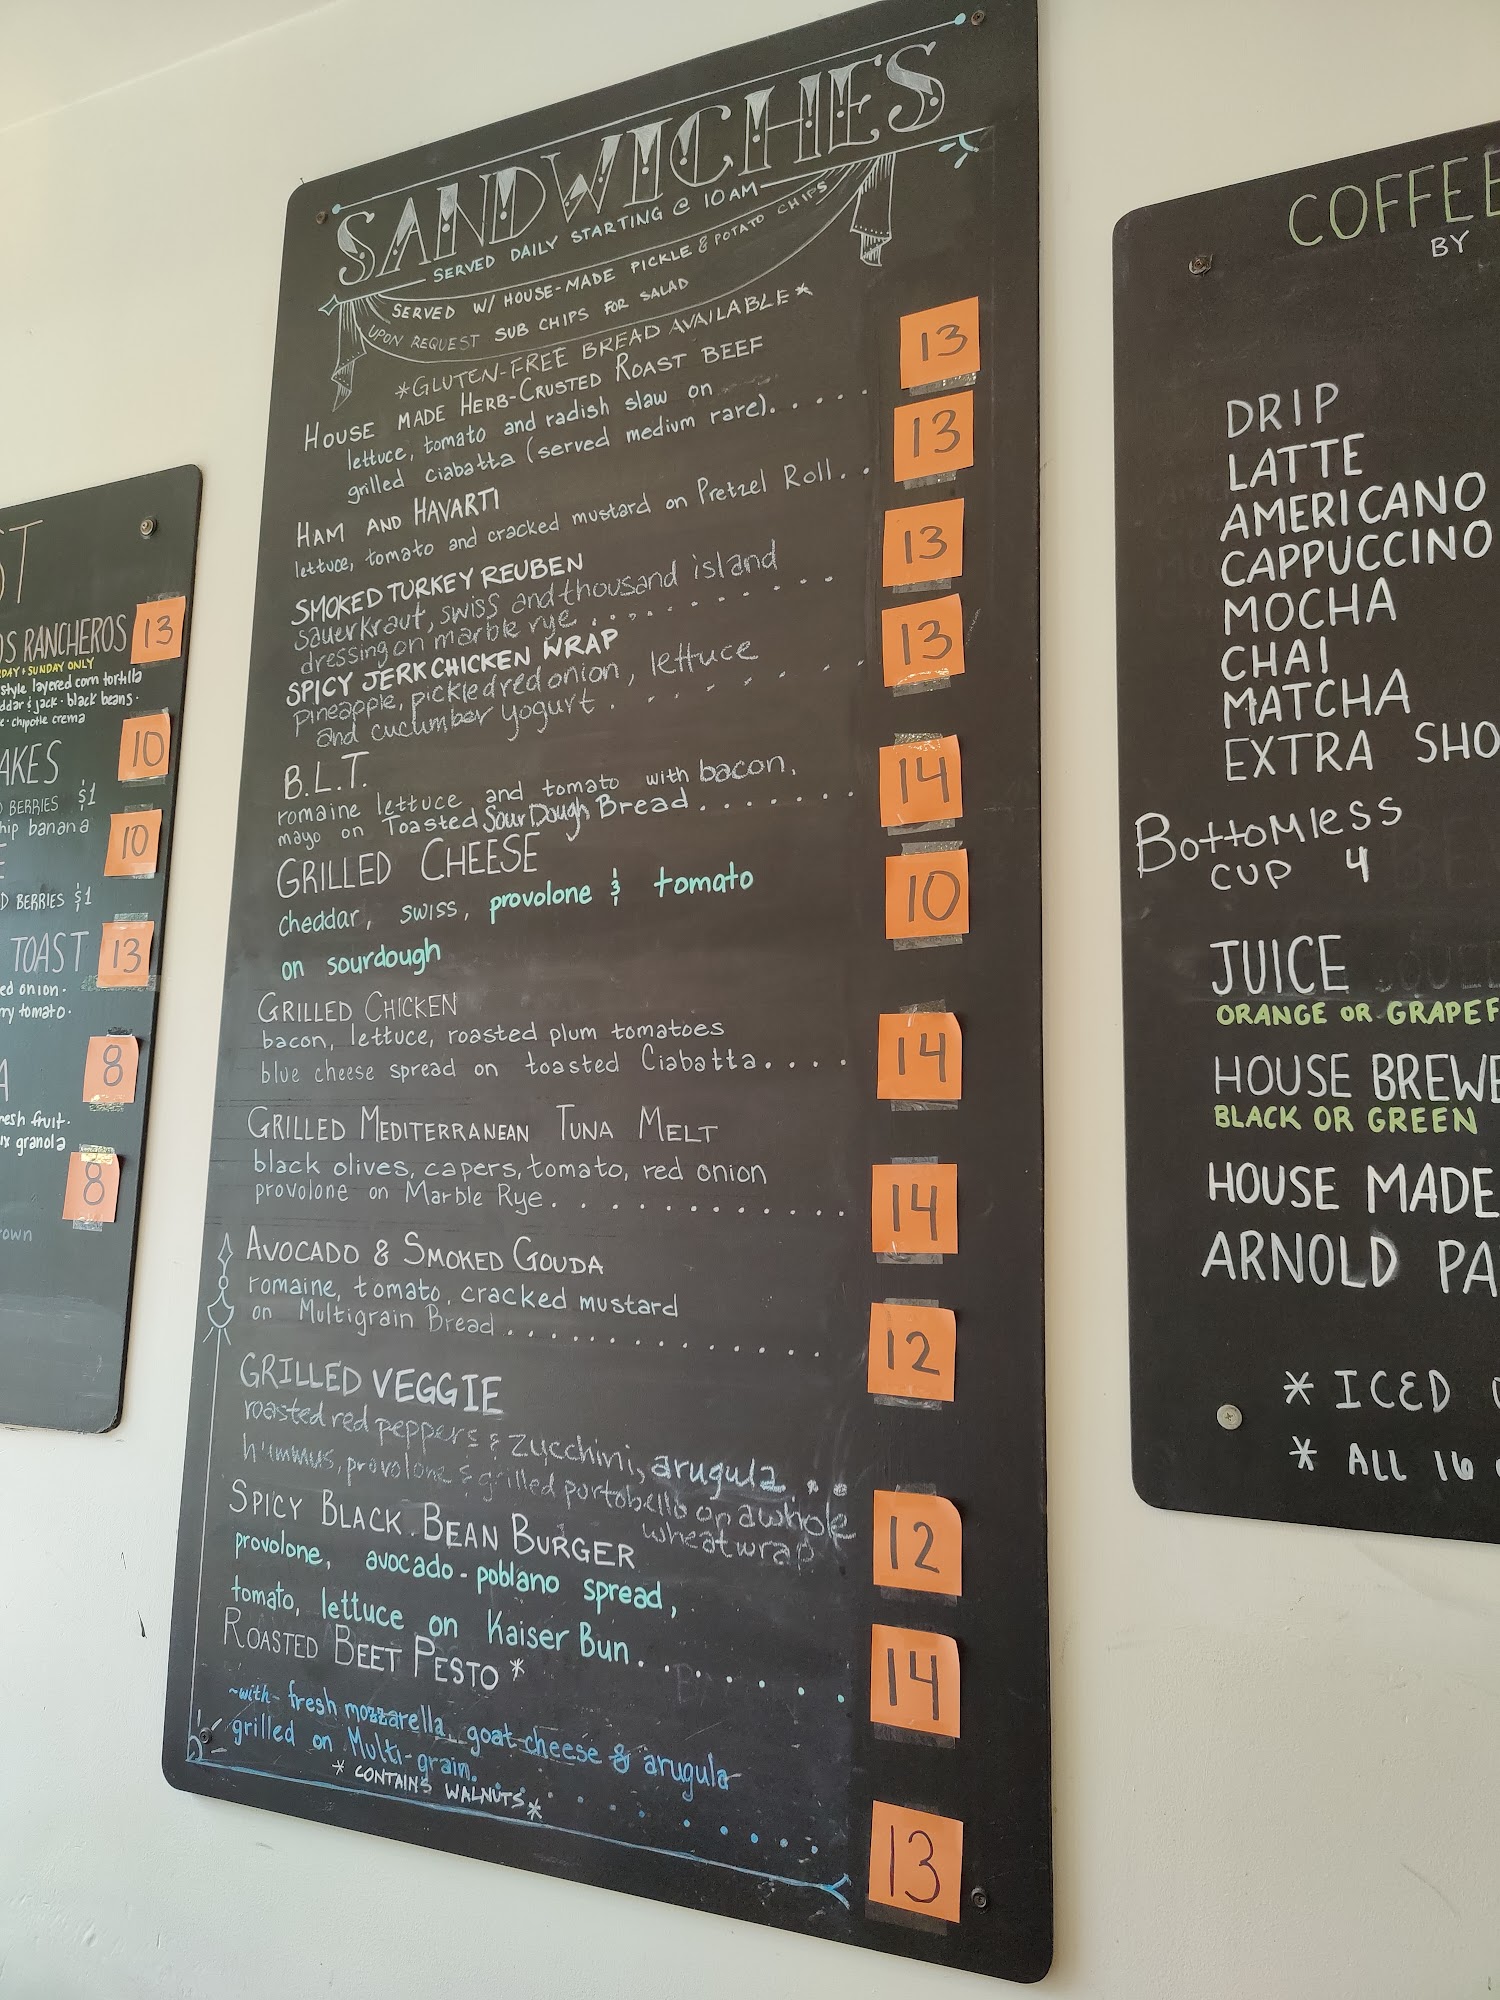 ST
OS RANCHEROS 13
DAY + SUNDAY ONLY
style layered corn tortilla
ddar & jack · black beans ·
e · chipotle crema
AKES 10
D BERRIES $1
hip banana
E 10
D BERRIES $1
TOAST 13
ed onion ·
rry tomato ·
A 8
resh fruit ·
ax granola
8
rown
SANDWICHES
SERVED DAILY STARTING @ 10AM
SERVED W/ HOUSE-MADE PICKLE & POTATO CHIPS
UPON REQUEST SUB CHIPS FOR SALAD
*GLUTEN-FREE BREAD AVAILABLE*
HOUSE MADE HERB-CRUSTED ROAST BEEF 13
lettuce, tomato and radish slaw on
grilled ciabatta (served medium rare).....
HAM AND HAVARTI 13
lettuce, tomato and cracked mustard on Pretzel Roll..
SMOKED TURKEY REUBEN 13
sauerkraut, swiss and thousand island
dressing on marble rye.........
SPICY JERK CHICKEN WRAP 13
Pineapple, pickled red onion, lettuce
and cucumber yogurt........
B.L.T. 14
romaine lettuce and tomato with bacon,
mayo on Toasted Sour Dough Bread........
GRILLED CHEESE 10
cheddar, swiss, provolone & tomato
on sourdough
GRILLED CHICKEN 14
bacon, lettuce, roasted plum tomatoes
blue cheese spread on toasted Ciabatta....
GRILLED MEDITERRANEAN TUNA MELT 14
black olives, capers, tomato, red onion
provolone on Marble Rye.............
AVOCADO & SMOKED GOUDA 12
romaine, tomato, cracked mustard
on Multigrain Bread.............
GRILLED VEGGIE 12
roasted red peppers & zucchini, arugula..
hummus, provolone & grilled portobello on a whole
wheat wrap
SPICY BLACK BEAN BURGER 14
provolone, avocado-poblano spread,
tomato, lettuce on Kaiser Bun........
ROASTED BEET PESTO * 13
~with~ fresh mozzarella, goat cheese & arugula
grilled on Multi-grain.
* CONTAINS WALNUTS *
COFFEE
BY
DRIP
LATTE
AMERICANO
CAPPUCCINO
MOCHA
CHAI
MATCHA
EXTRA SHO
Bottomless
CUP 4
JUICE
ORANGE OR GRAPEF
HOUSE BREWE
BLACK OR GREEN
HOUSE MADE
ARNOLD PA
* ICED
* ALL 16